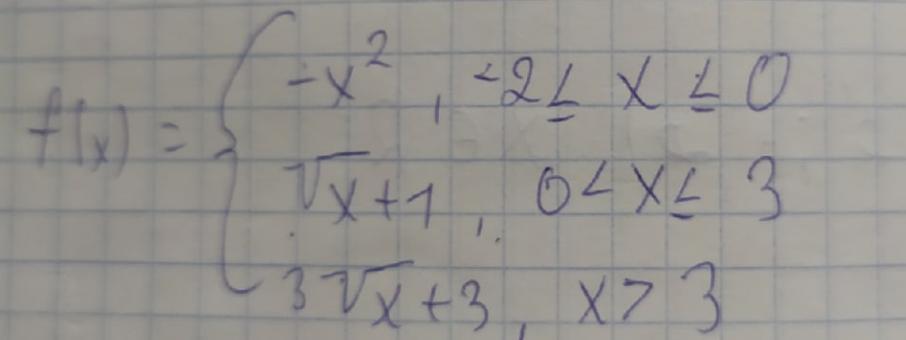 f(x) = { -x², -2 ≤ x ≤ 0
√x+1, 0 < x ≤ 3
3√x+3, x > 3